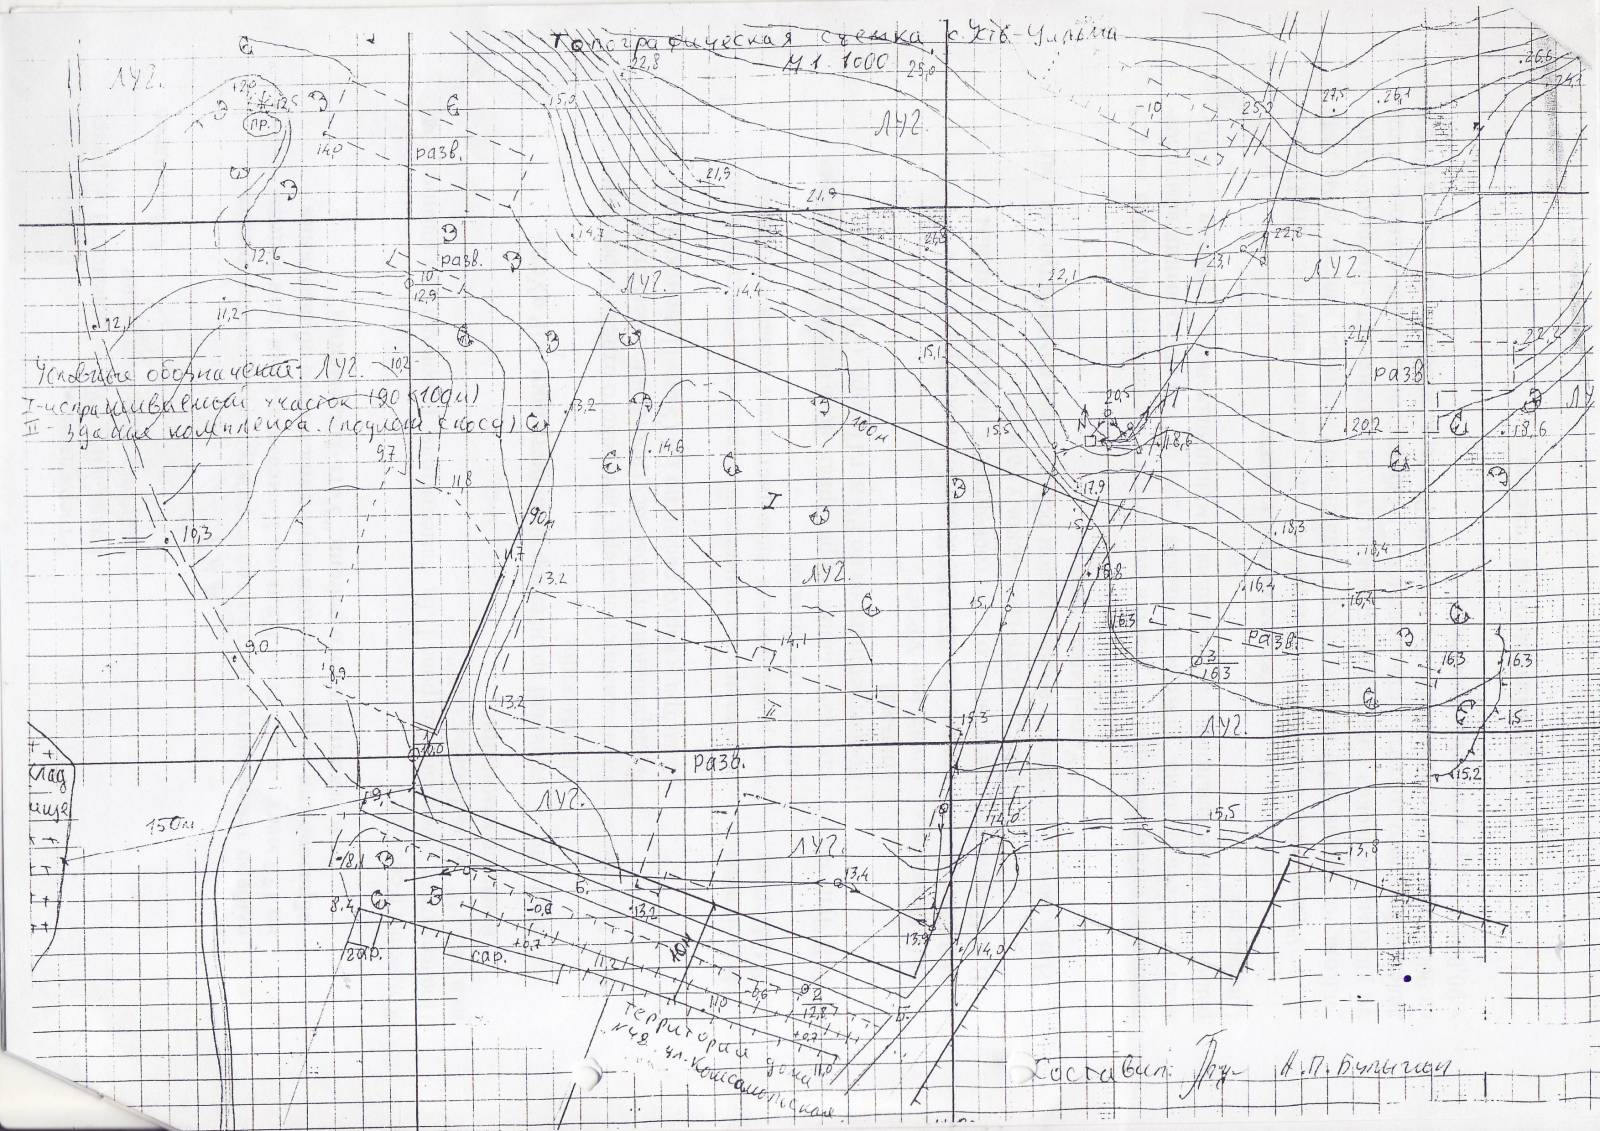 Топографическая съемка с. Усть-Цильма
М 1:1000
22,8
25,0
26,6
ЛУГ.
12,0
12,5
ПР.
15,0
-1,0
25,0
27,5
26,1
ЛУГ.
14,0
разв.
21,5
21,9
разв.
14,7
22,8
23,1
ЛУГ.
12,6
10
12,9
ЛУГ.
14,4
22,1
12,1
11,2
15,1
21,1
22,2
Условные обозначения: ЛУГ.
10,2
разв.
I - испрашиваемый участок (90×100м)
II - здания комплекса. (подлежат сносу)
13,2
100м
20,5
15,5
14,6
18,6
20,2
18,6
9,7
11,8
I
17,9
90м
10,3
11,7
18,3
18,4
13,2
ЛУГ.
16,4
16,3
разв.
14,1
9,0
8,9
3
16,3
16,3
16,3
13,2
II
15,3
ЛУГ.
-1,5
10,0
разв.
15,2
клад
ище
150м
9,1
ЛУГ.
14,0
15,5
ЛУГ.
13,8
-8,1
13,4
8,4
-0,8
13,2
13,9
14,0
гар.
сар.
+0,7
11,2
40м
11,0
-0,6
2
12,8
+0,7
11,0
Территория дома
№48 ул. Комсомольская
Составил: А.П. Булыгин